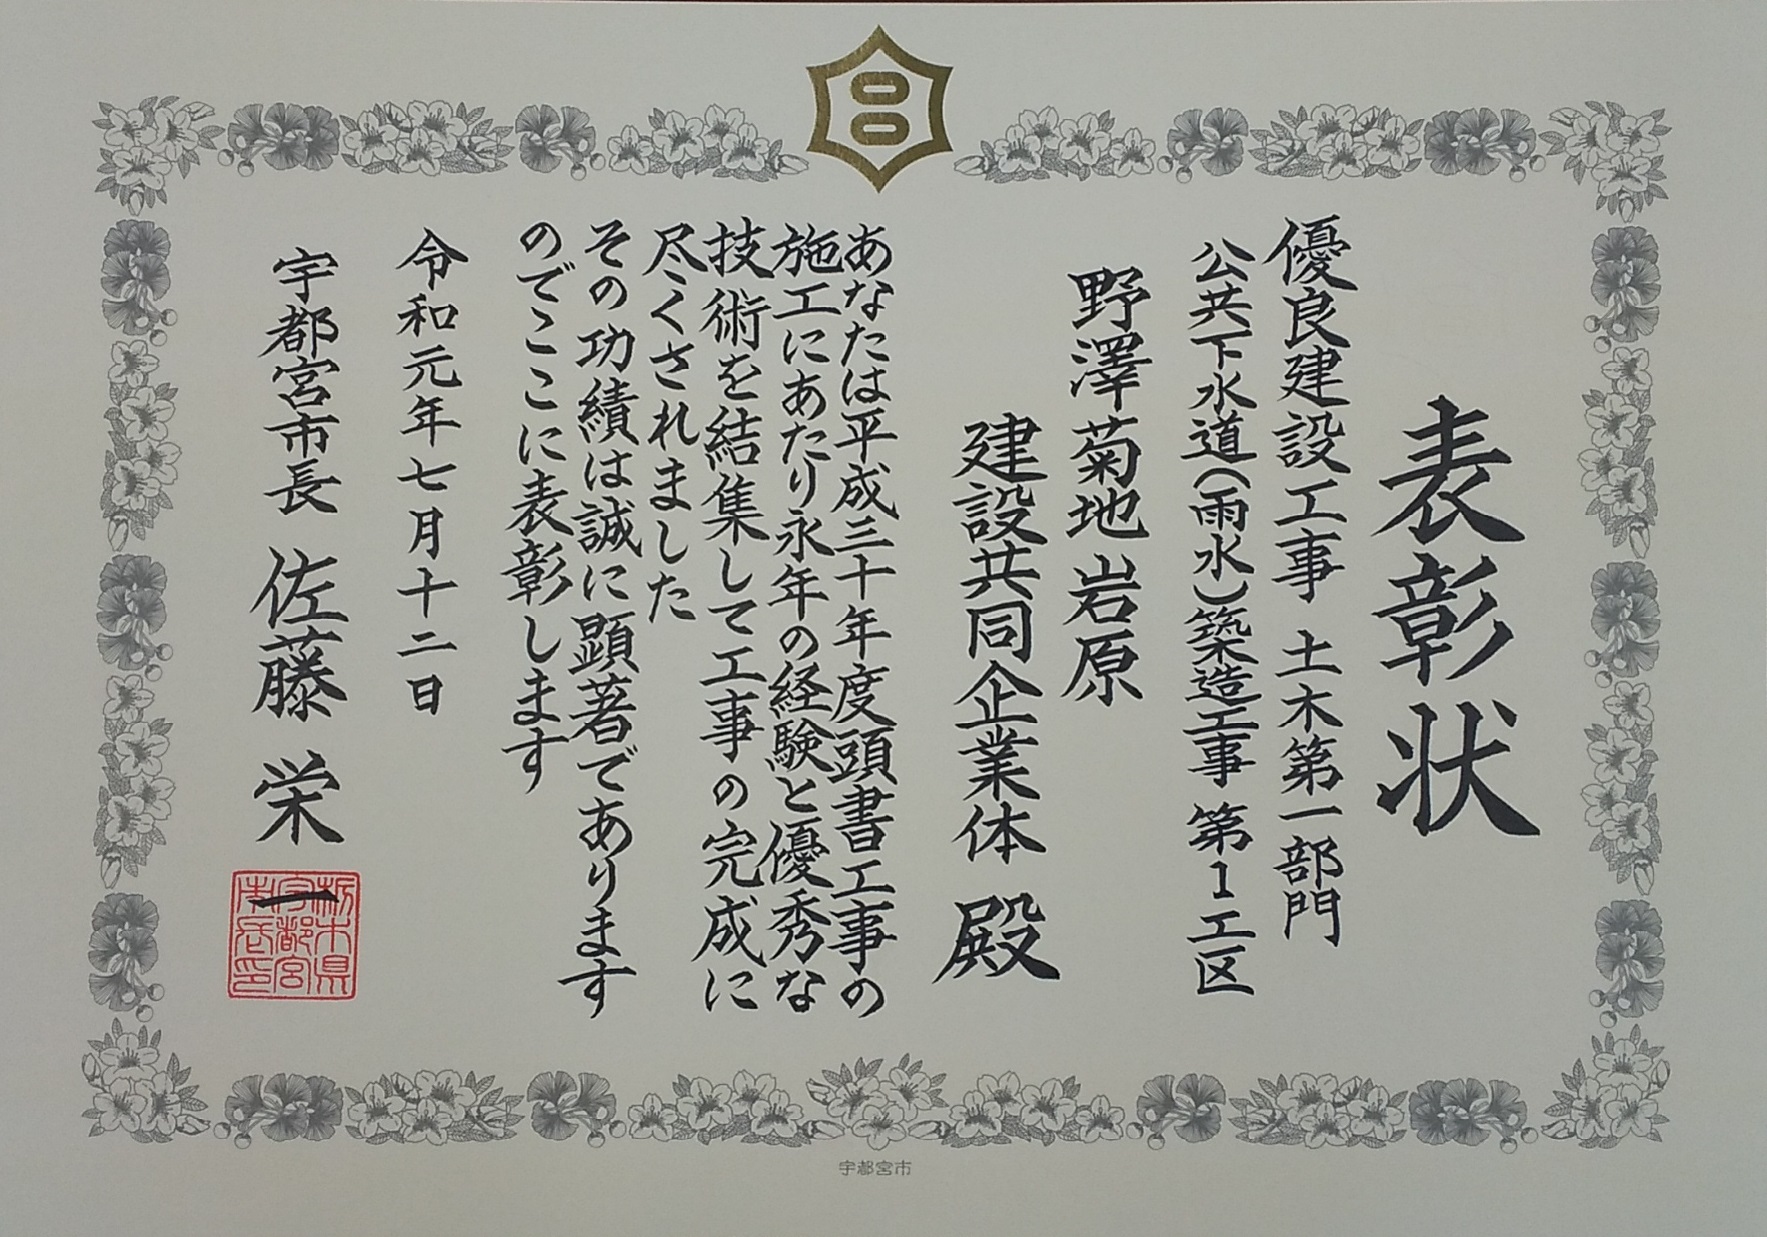 表彰状
優良建設工事 土木第一部門
公共下水道(雨水)築造工事 第1工区
野澤菊地岩原
建設共同企業体 殿
あなたは平成三十年度頭書工事の
施工にあたり永年の経験と優秀な
技術を結集して工事の完成に
尽くされました
その功績は誠に顕著であります
のでここに表彰します
令和元年七月十二日
宇都宮市長 佐藤栄一
栃木県
宇都宮
市長印
宇都宮市